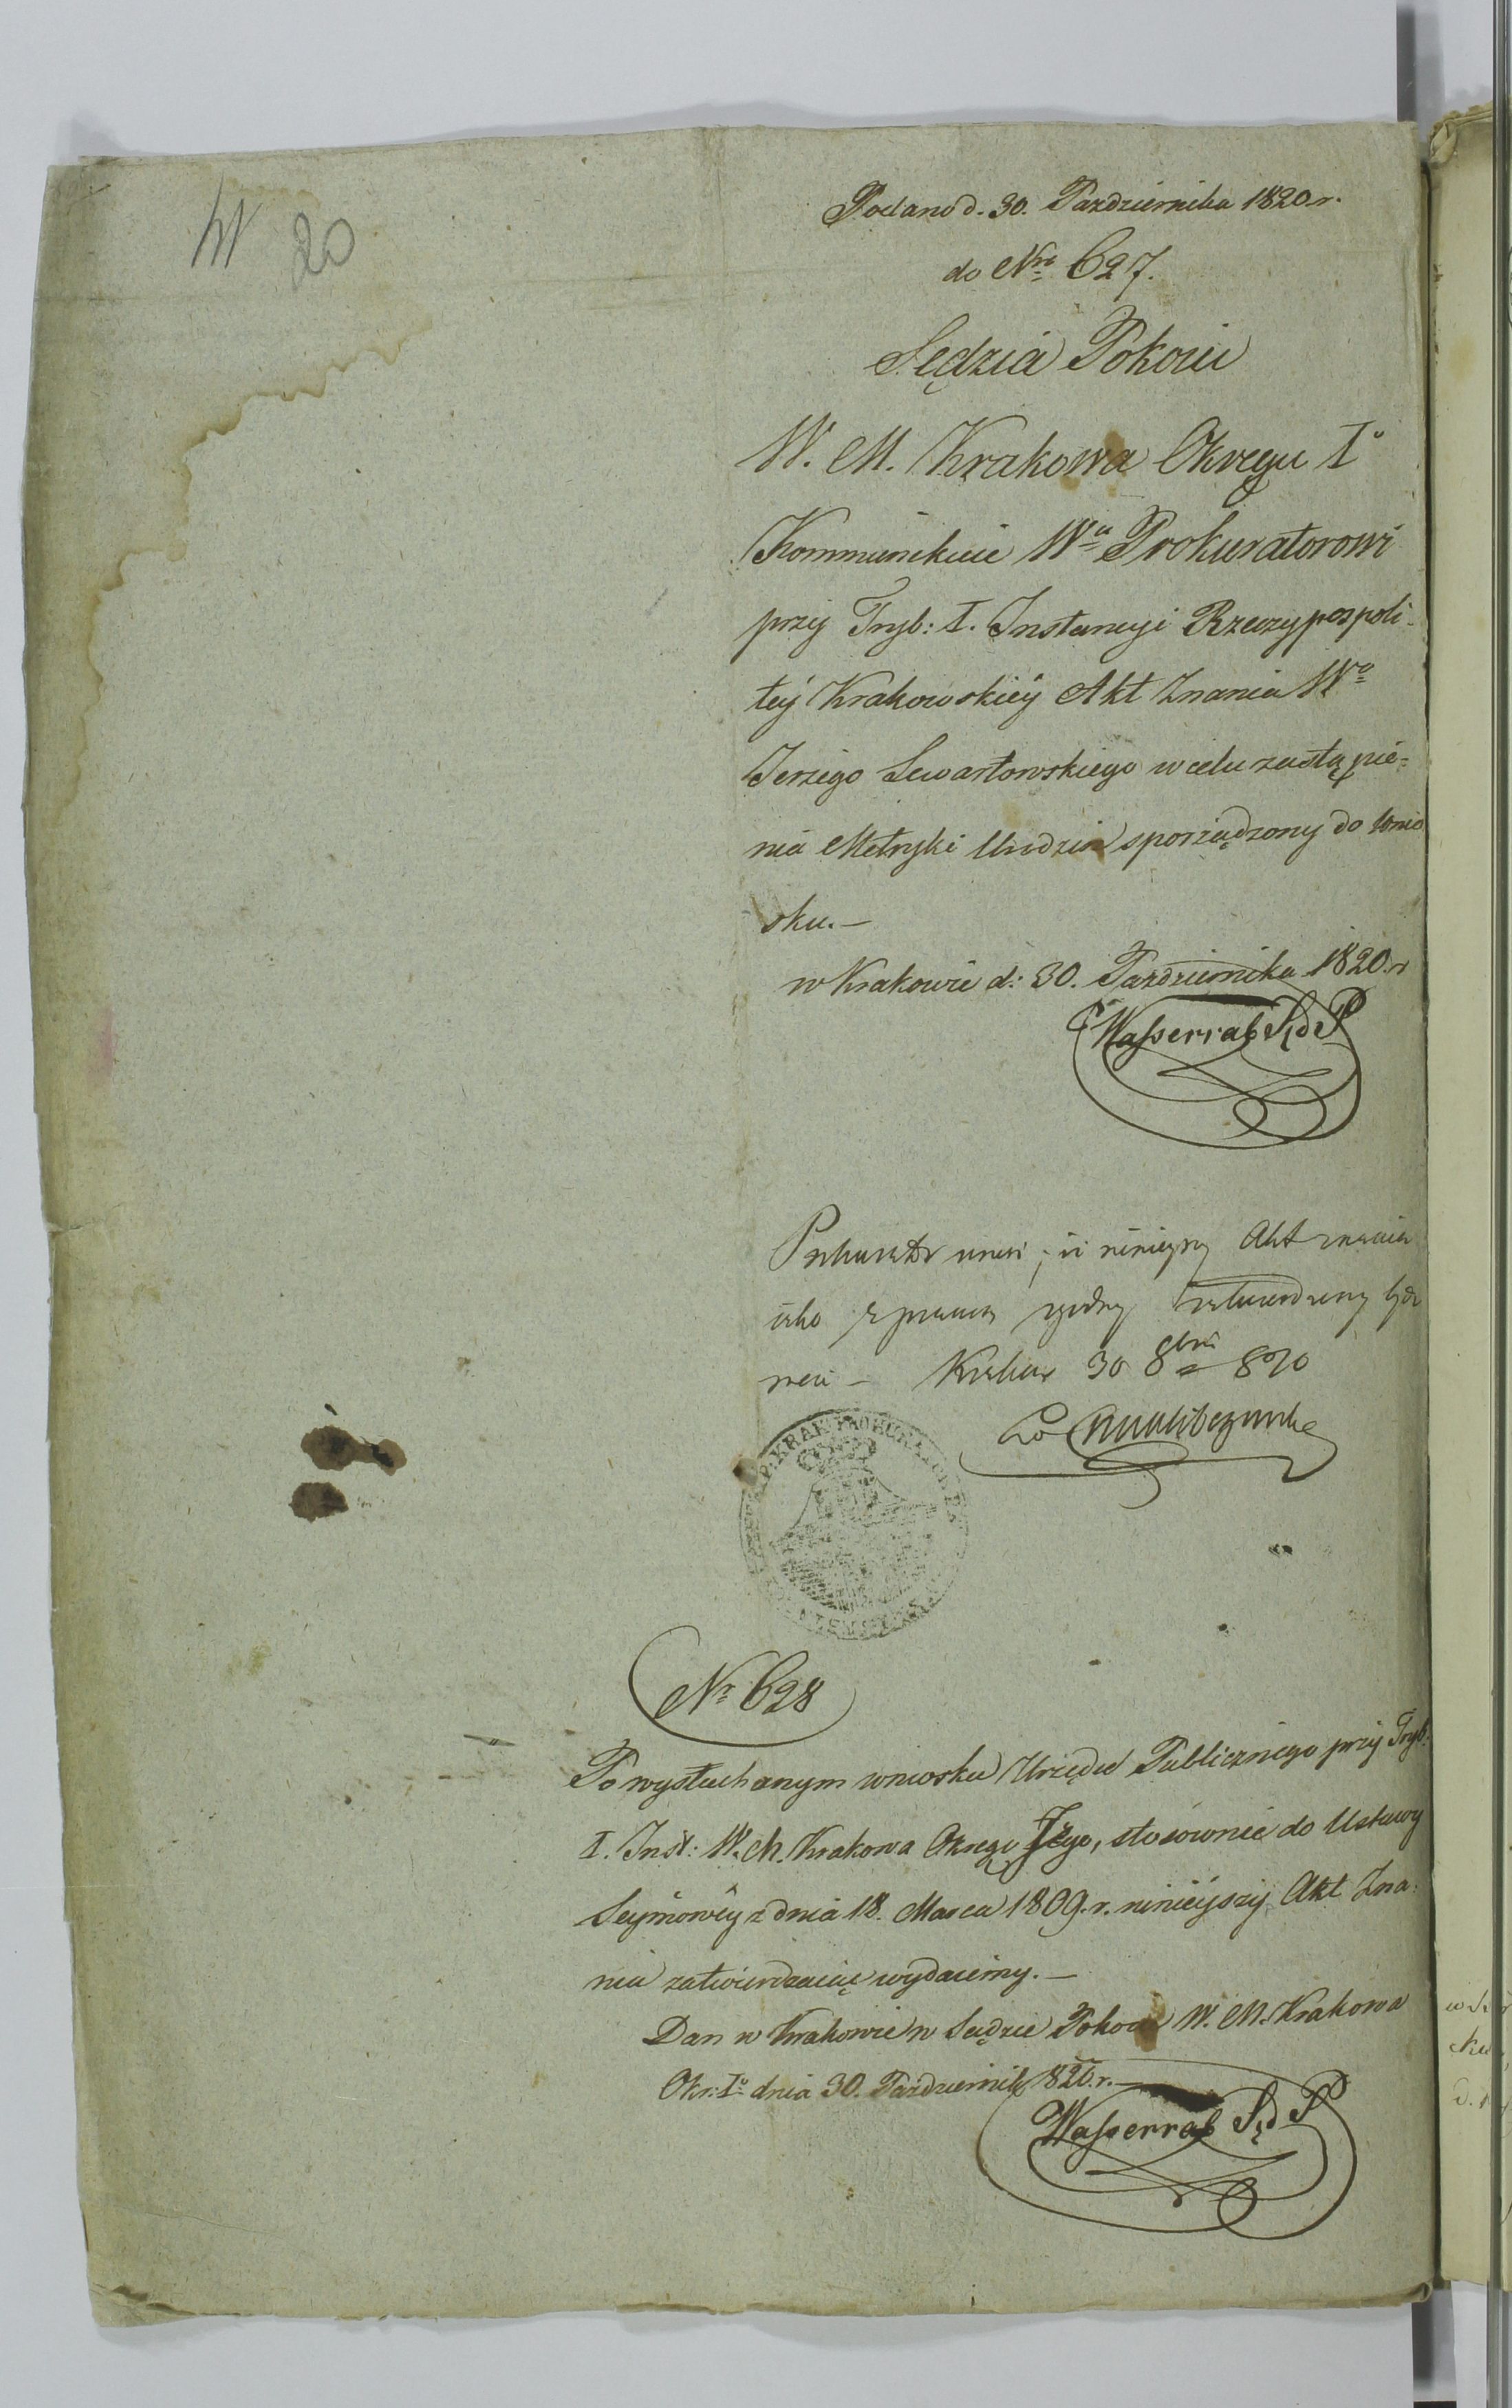 W 20
Podano d. 30. Pazdziernika 1820 r.
do Nro 627.
Sędzia Pokoiu
W. M. Krakowa Okręgu Io
Kommunikuie Wu Prokuratorowi
przy Tryb: I. Instancyi Rzeczypospoli-
téy Krakowskiéy Akt Znania Wo
Jerzego Lewartowskiego w celu zastąpie=
nia Metryki Urodzin sporządzony do wnio
sku. —
w Krakowie d: 30. Pazdziernika 1820. r
Wasserrab Sęd P
Prokurator wnosi, iż ninieyszy Akt znania
iako z prawem zgodny zatwierdzony być
Krakow 30 8bris 820
No 628
Po wysłuchanym wniosku Urzędu Publicznego przy Tryb:
I. Inst: W. M. Krakowa Okręgu Igo, stosownie do Ustawy
Seymowéy z dnia 18. Marca 1809. r. ninieyszy Akt Zna:
nia zatwierdzaiąc wydaiemy. —
Dan w Krakowie w Sądzie Pokoiu W. M. Krakowa
Okr: Io dnia 30. Pazdziernik 1820. r. —
Wasserrab Sęd P